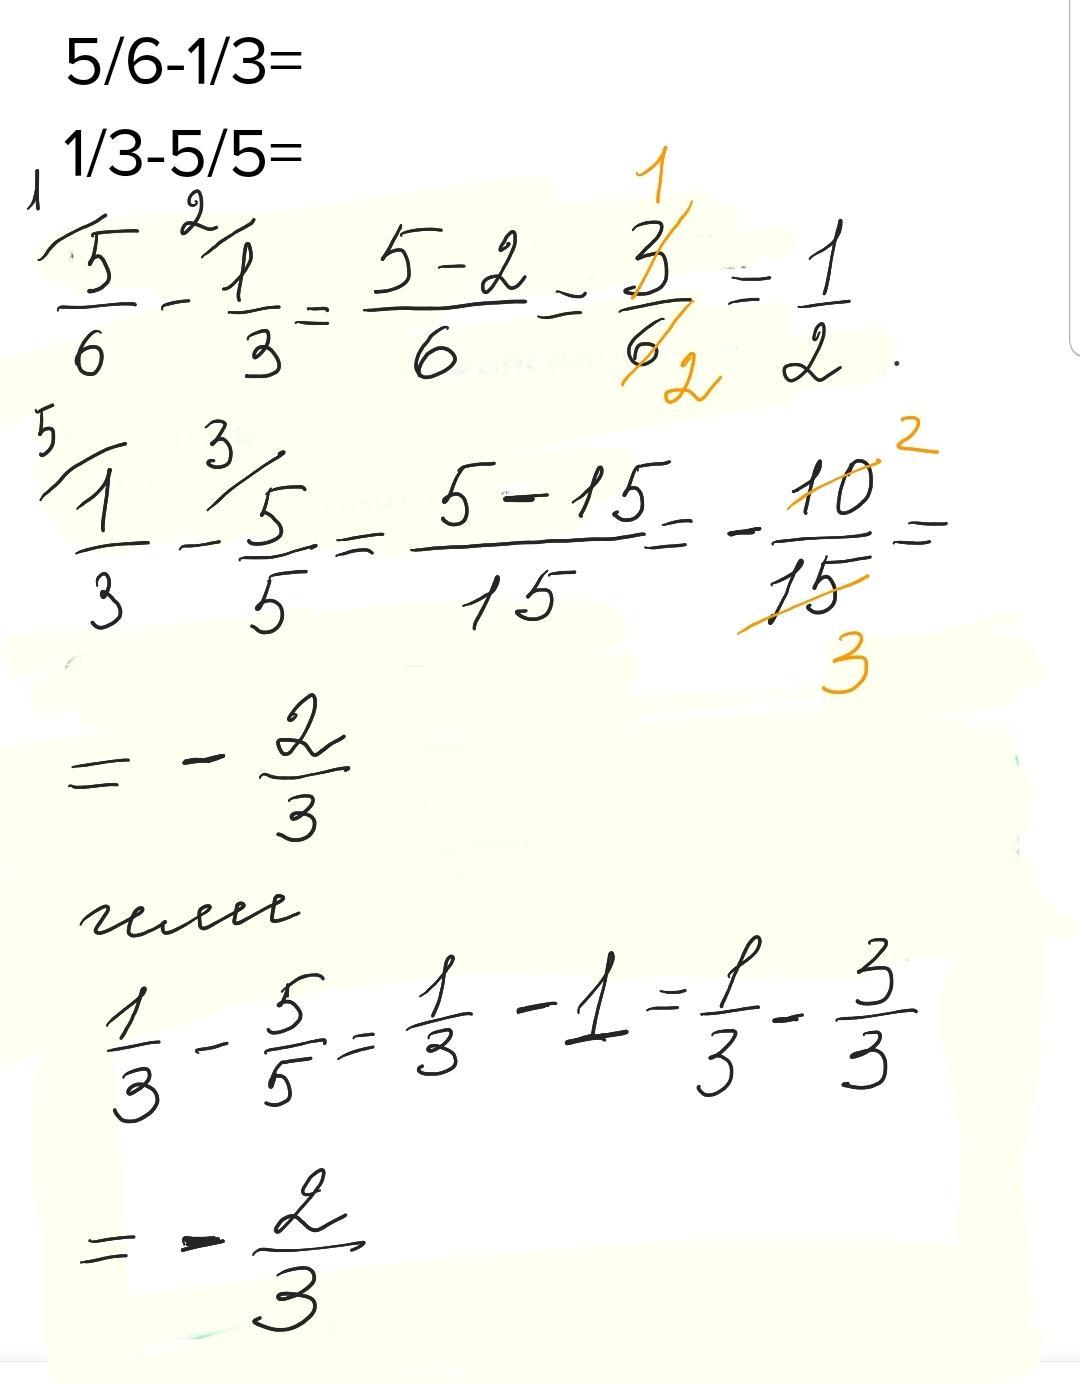 5/6-1/3=
1/3-5/5=
1/5/6 - 2/1/3 = 5-2/6 = 3/6 1 2 = 1/2 .
5/1/3 - 3/5/5 = 5-15/15 = - 10/15 2 3 =
= - 2/3
или
1/3 - 5/5 = 1/3 - 1 = 1/3 - 3/3
= - 2/3